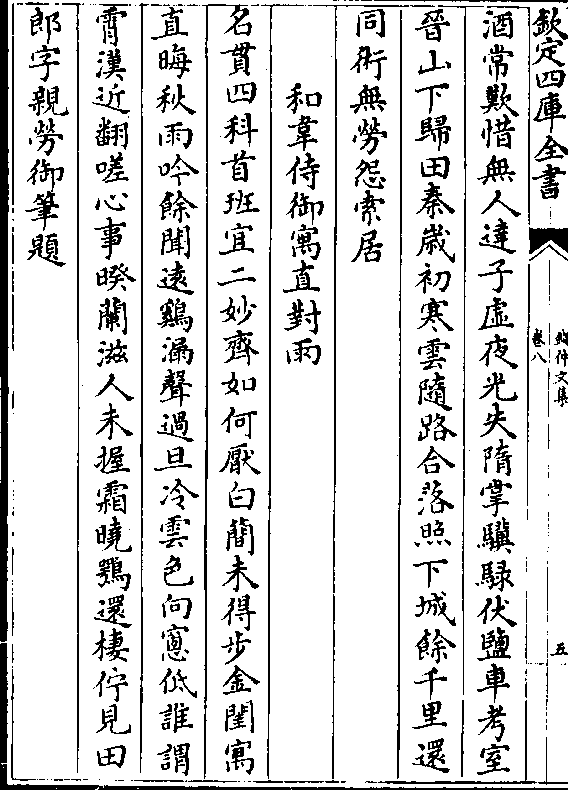 欽定四庫全書
毘陵集
卷八
五
酒常歎惜無人達子虛夜光失隋掌驥騄伏鹽車考室
晉山下歸田秦歲初寒雲隨路合落照下城餘千里還
同術無勞怨索居
和韋侍御寓直對雨
名貫四科首班宜二妙齊如何厭白簡未得步金閨寓
直晦秋雨吟餘聞遠鷄漏聲過旦冷雲色向窓低誰謂
霄漢近翻嗟心事暌蘭滋人未握霜曉鶚還棲佇見田
郎字親勞御筆題